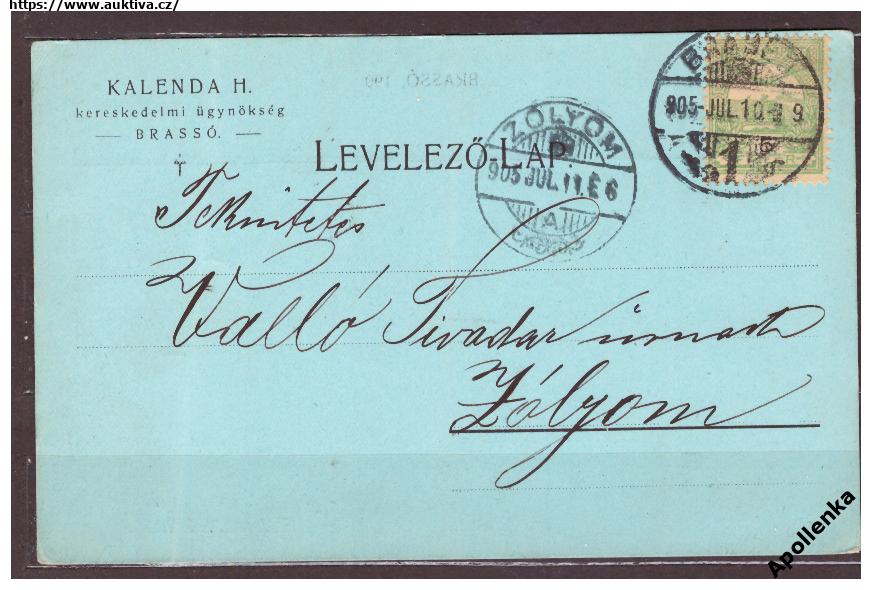 https://www.auktiva.cz/
KALENDA H.
kereskedelmi ügynökség
BRASSÓ.
LEVELEZŐ-LAP
BRASSÓ. 190
ZÓLYOM
905 JUL. 11. É 6
A
905 JUL. 10. 9
Tekintetes
Valló Tivadar úrnak
Zólyom
Apollenka